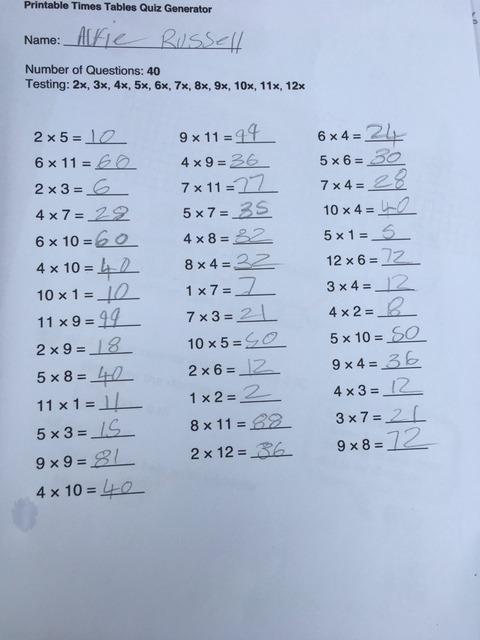 Printable Times Tables Quiz Generator
Name: Alfie Russell
Number of Questions: 40
Testing: 2x, 3x, 4x, 5x, 6x, 7x, 8x, 9x, 10x, 11x, 12x
2 x 5 = 10
6 x 11 = 60
2 x 3 = 6
4 x 7 = 28
6 x 10 = 60
4 x 10 = 40
10 x 1 = 10
11 x 9 = 99
2 x 9 = 18
5 x 8 = 40
11 x 1 = 11
5 x 3 = 15
9 x 9 = 81
4 x 10 = 40
9 x 11 = 99
4 x 9 = 36
7 x 11 = 77
5 x 7 = 35
4 x 8 = 32
8 x 4 = 32
1 x 7 = 7
7 x 3 = 21
10 x 5 = 50
2 x 6 = 12
1 x 2 = 2
8 x 11 = 88
2 x 12 = 36
6 x 4 = 24
5 x 6 = 30
7 x 4 = 28
10 x 4 = 40
5 x 1 = 5
12 x 6 = 72
3 x 4 = 12
4 x 2 = 8
5 x 10 = 50
9 x 4 = 36
4 x 3 = 12
3 x 7 = 21
9 x 8 = 72